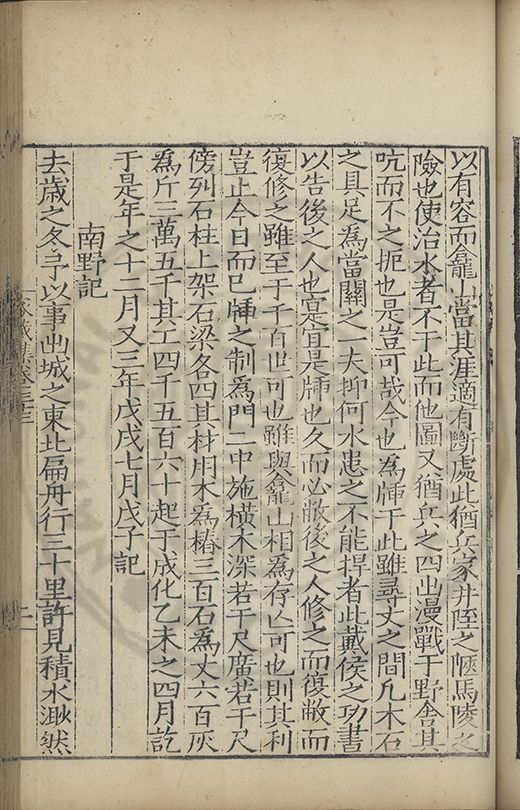 以有容而龕山當其涯適有斷處此猶兵家井陘之陿馬陵之
險也使治水者不于此而他圖又猶兵之四出漫戰于野舍其
吭而不之扼也是豈可哉今也為牐于此雖尋丈之間凡木石
之具足為當關之一夫抑何水患之不能捍者此戴侯之功書
以告後之人也寔宜是牐也久而必敝後之人修之而復敝而
復修之雖至于千百世可也雖與龕山相為存亾可也則其利
豈止今日而已牐之制為門二中施橫木深若干尺廣若干尺
傍列石柱上架石梁各四其材用木為樁三百石為丈六百灰
為斤三萬五千其工四千五百六十起于成化乙未之四月訖
于是年之十二月又三年戊戌七月戊子記
南野記
去歲之冬予以事出城之東北扁舟行三十里許見積水渺然
家藏集卷三十三